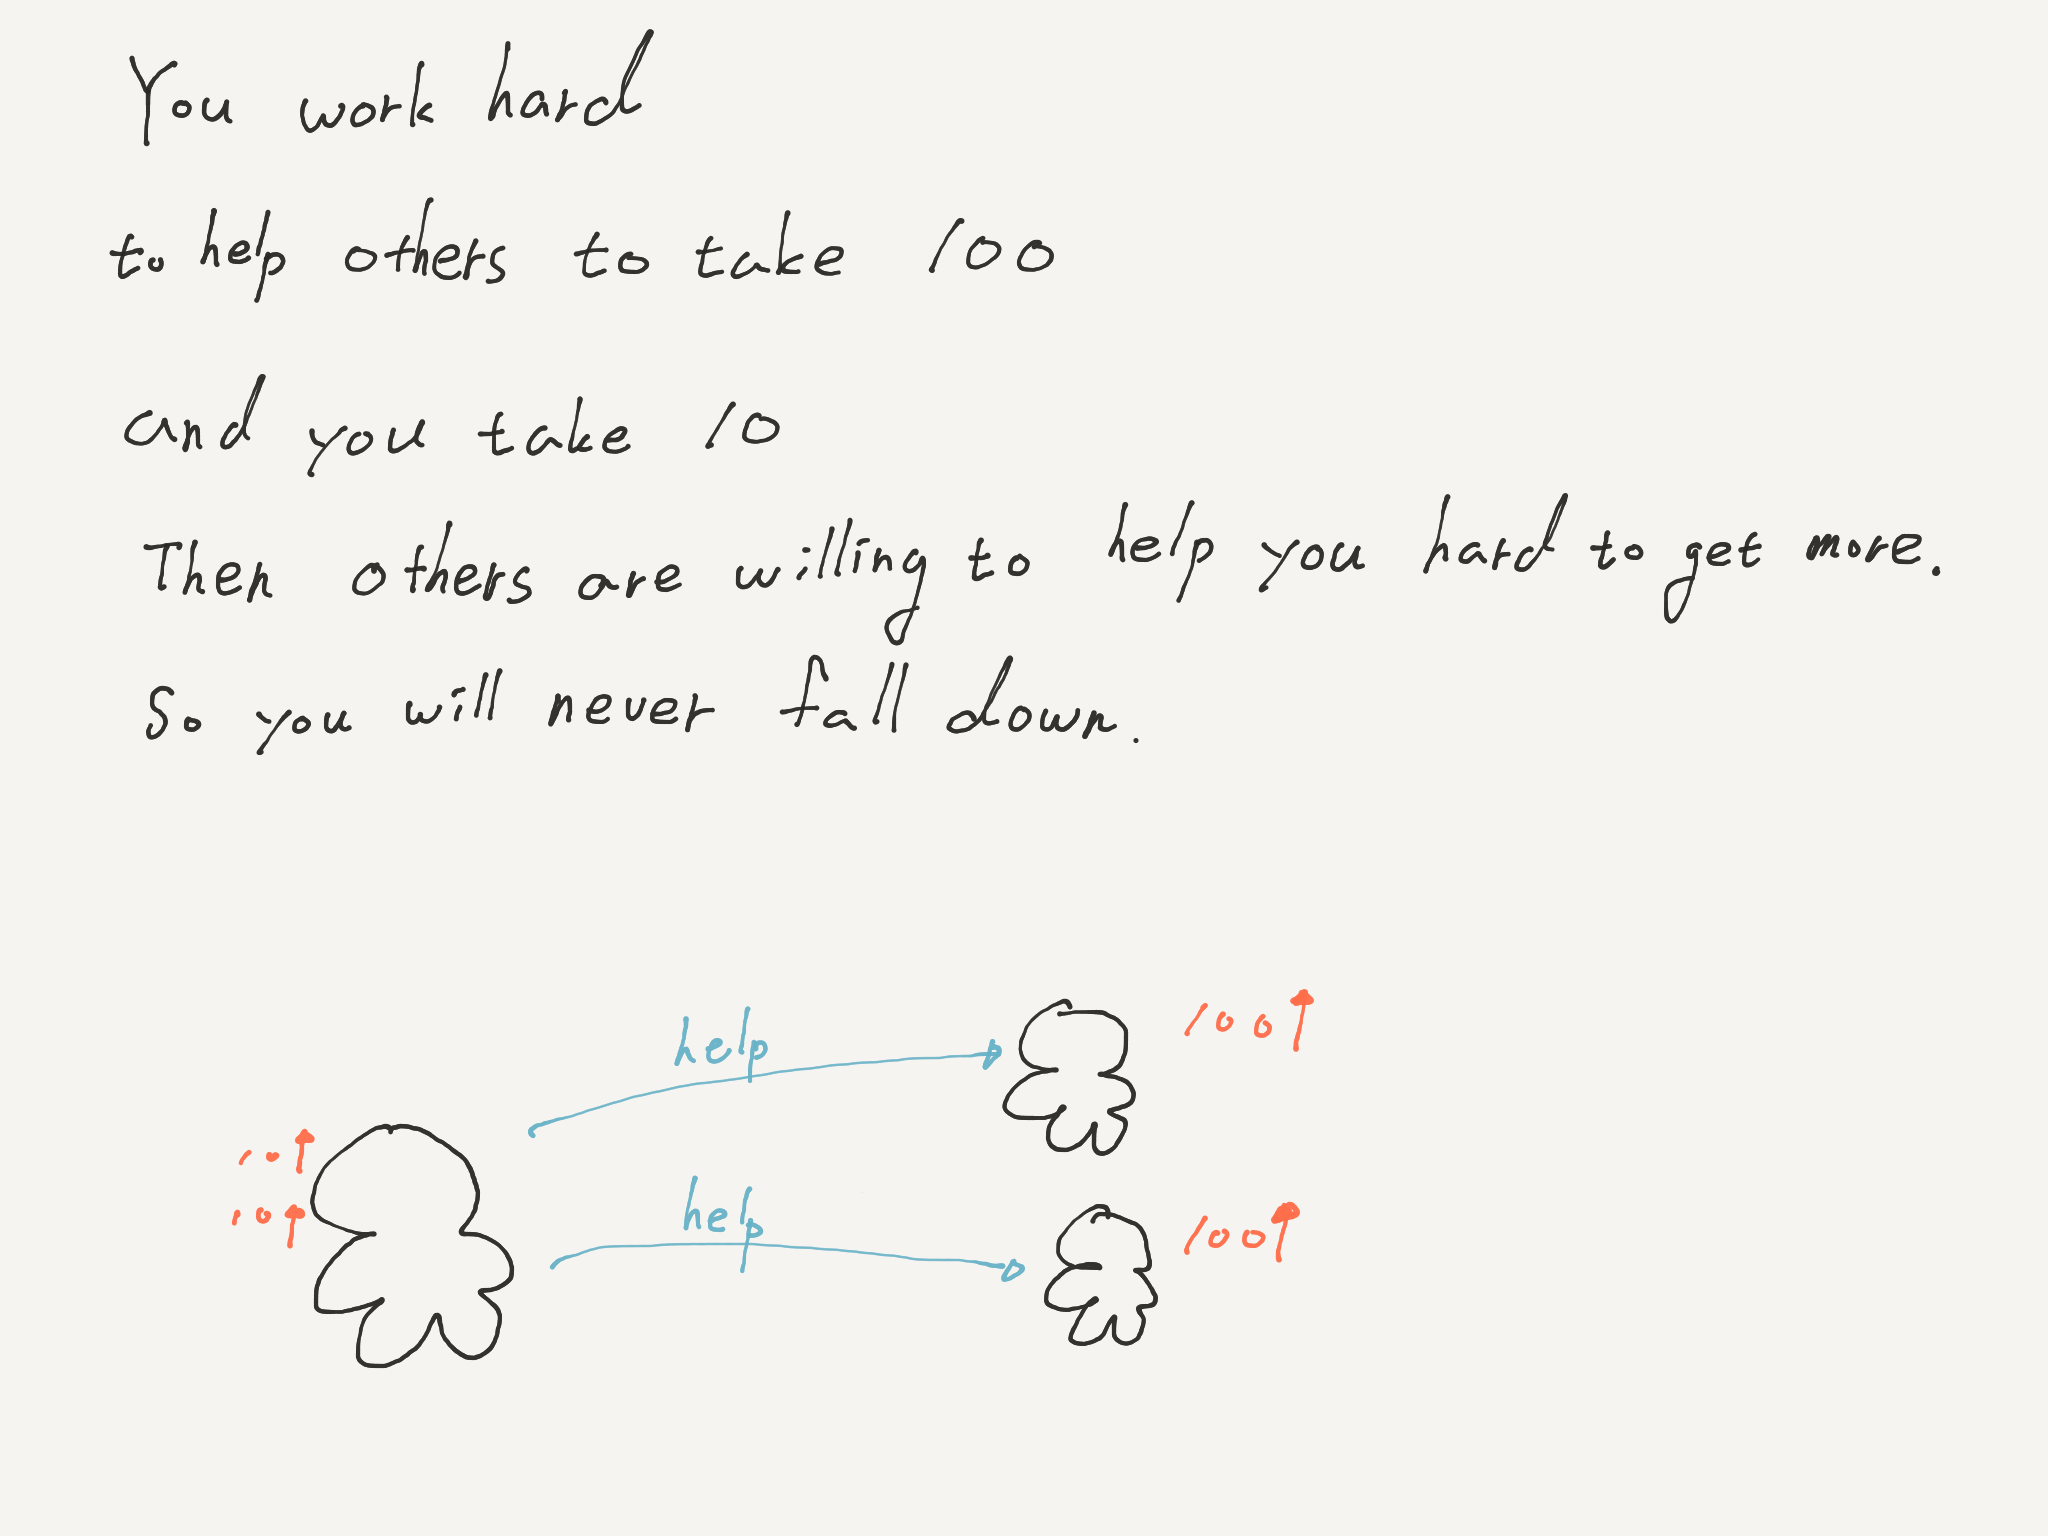 You work hard
to help others to take 100
and you take 10
Then others are willing to help you hard to get more.
So you will never fall down.
help
100
10
10
help
100